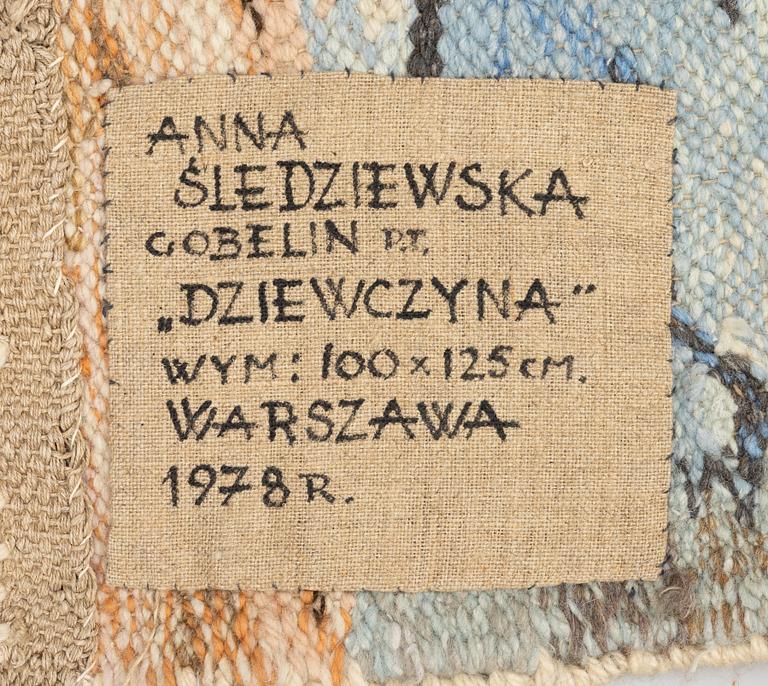 ANNA
ŚLEDZIEWSKA
GOBELIN P.T.
„DZIEWCZYNA"
WYM: 100 x 125 cM.
WARSZAWA
1978 R.